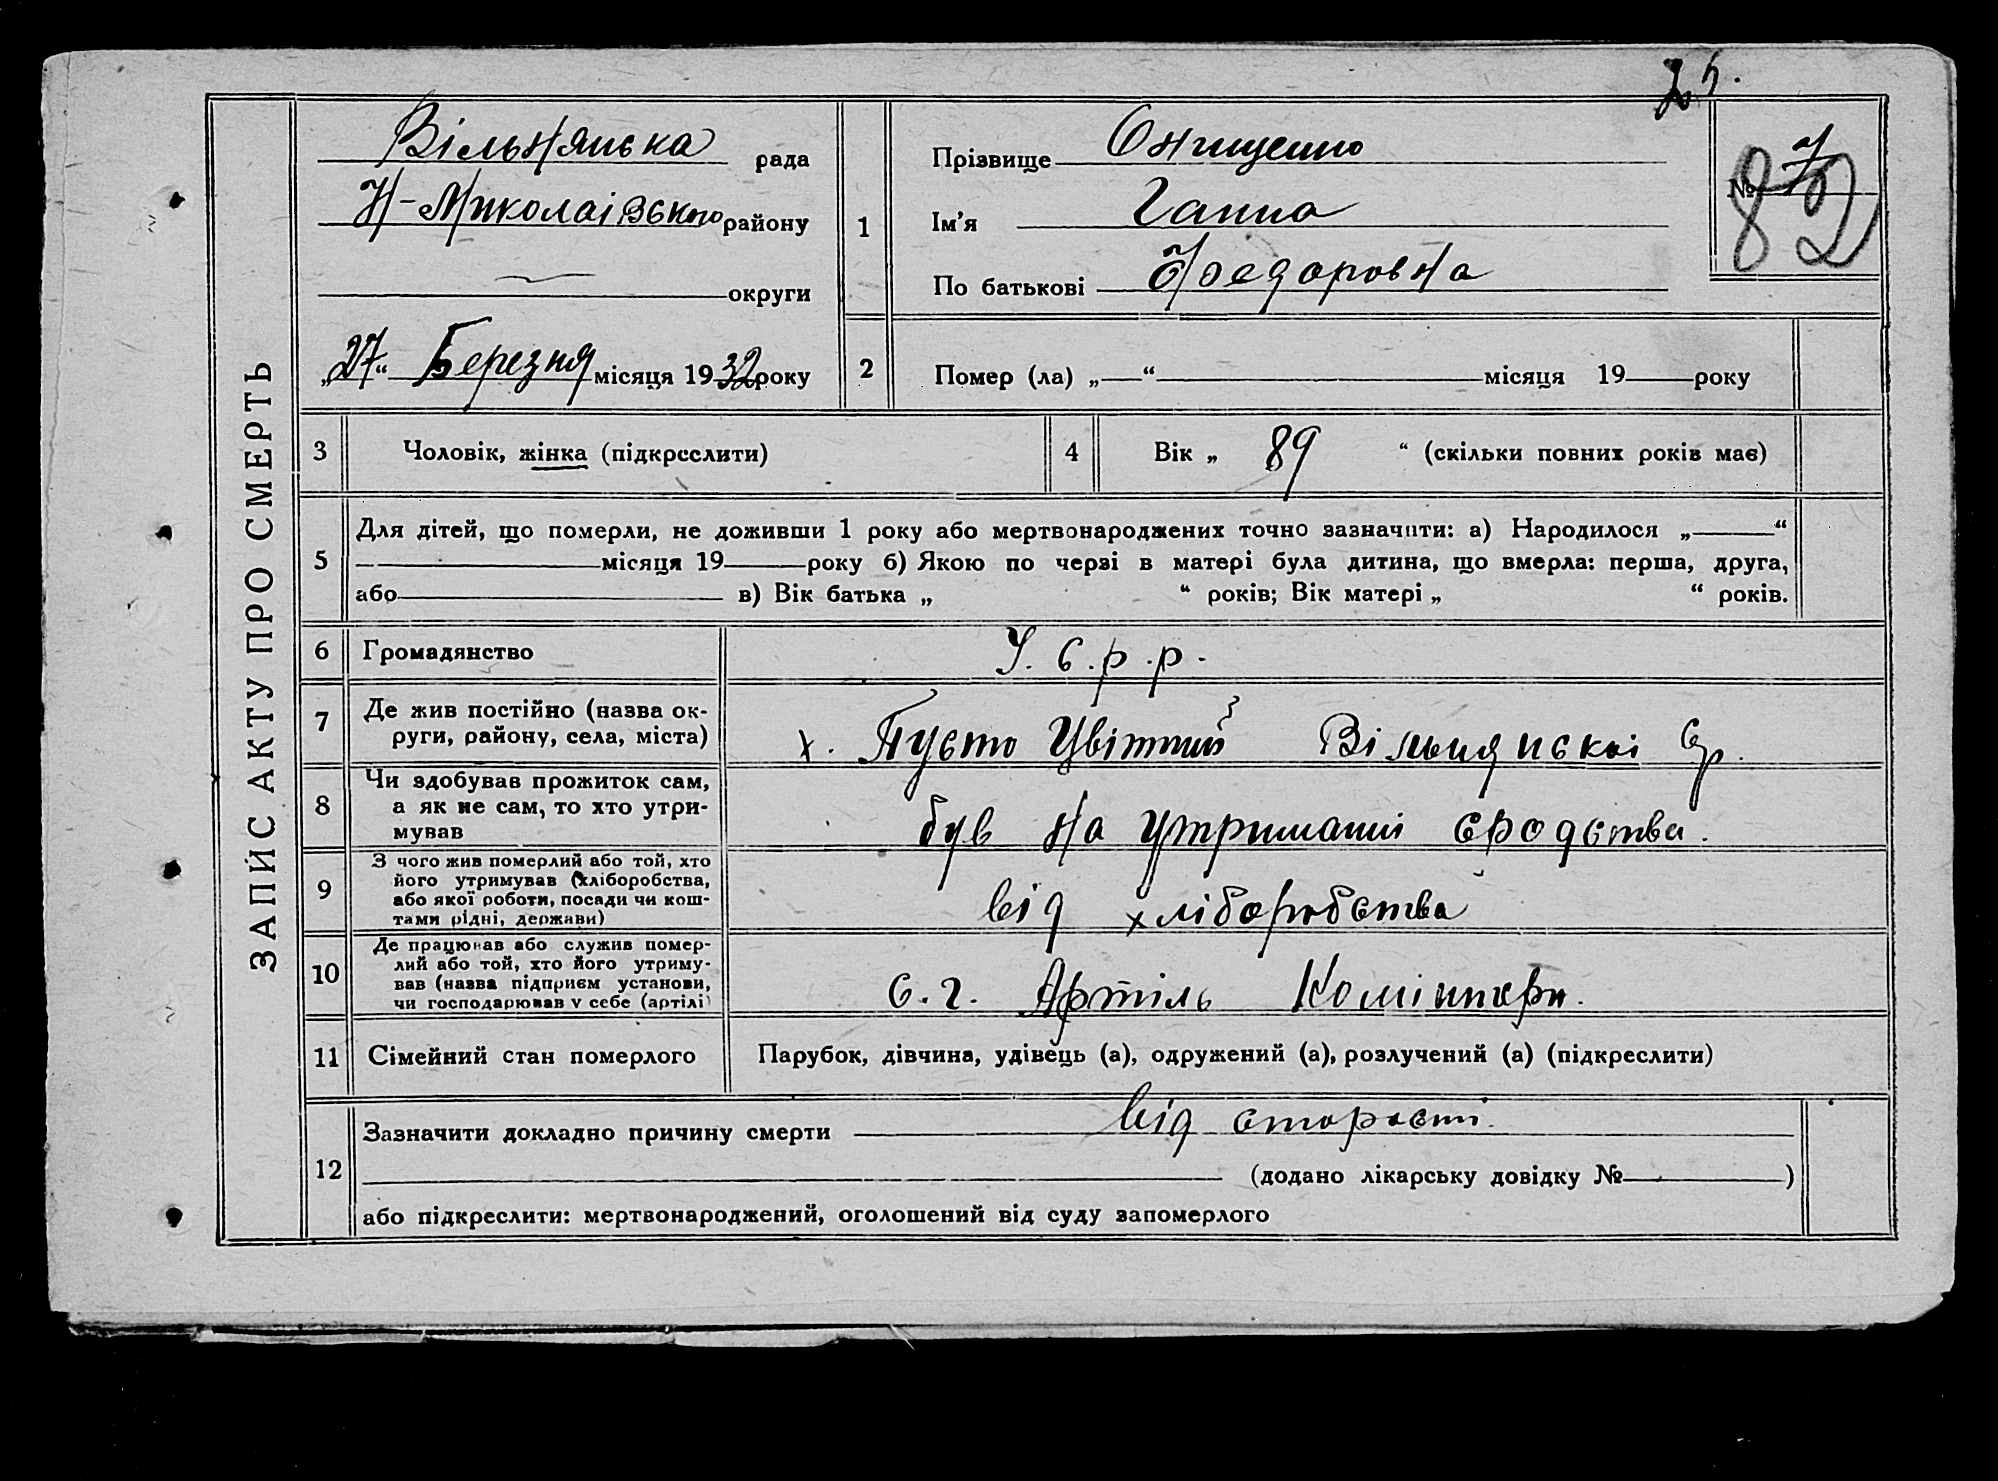 ЗАПИС АКТУ ПРО СМЕРТЬ
Вільнянська рада
Н-Миколаівського району
округи
„27“ Березня місяця 1932 року
1
Прізвище Онищенко
Ім'я Ганна
По батькові Федоровна
№ 7
82
2
Помер (ла) „—“ місяця 19 року
3
Чоловік, жінка (підкреслити)
4
Вік „ 89 “ (скільки повних років має)
5
Для дітей, що померли, не доживши 1 року або мертвонароджених точно зазначити: а) Народилося „ “
місяця 19 року б) Якою по черзі в матері була дитина, що вмерла: перша, друга,
або в) Вік батька „ “ років; Вік матері „ “ років.
6
Громадянство
У. С. р. р.
7
Де жив постійно (назва ок-
руги, району, села, міста)
х. Пусто Цвітний Вільнянскоі Ср.
8
Чи здобував прожиток сам,
а як не сам, то хто утри-
мував
був на утриманні сродства.
9
З чого жив померлий або той, хто
його утримував (хліборобства,
або якої роботи, посади чи кош-
тами рідні, держави)
від хліборобства
10
Де працював або служив помер-
лий або той, хто його утриму-
вав (назва підприєм установи,
чи господарював у себе (артілі)
с. г. Артіль Комінтерн.
11
Сімейний стан померлого
Парубок, дівчина, удівець (а), одружений (а), розлучений (а) (підкреслити)
12
Зазначити докладно причину смерти від старості.
(додано лікарську довідку № )
або підкреслити: мертвонароджений, оголошений від суду запомерлого